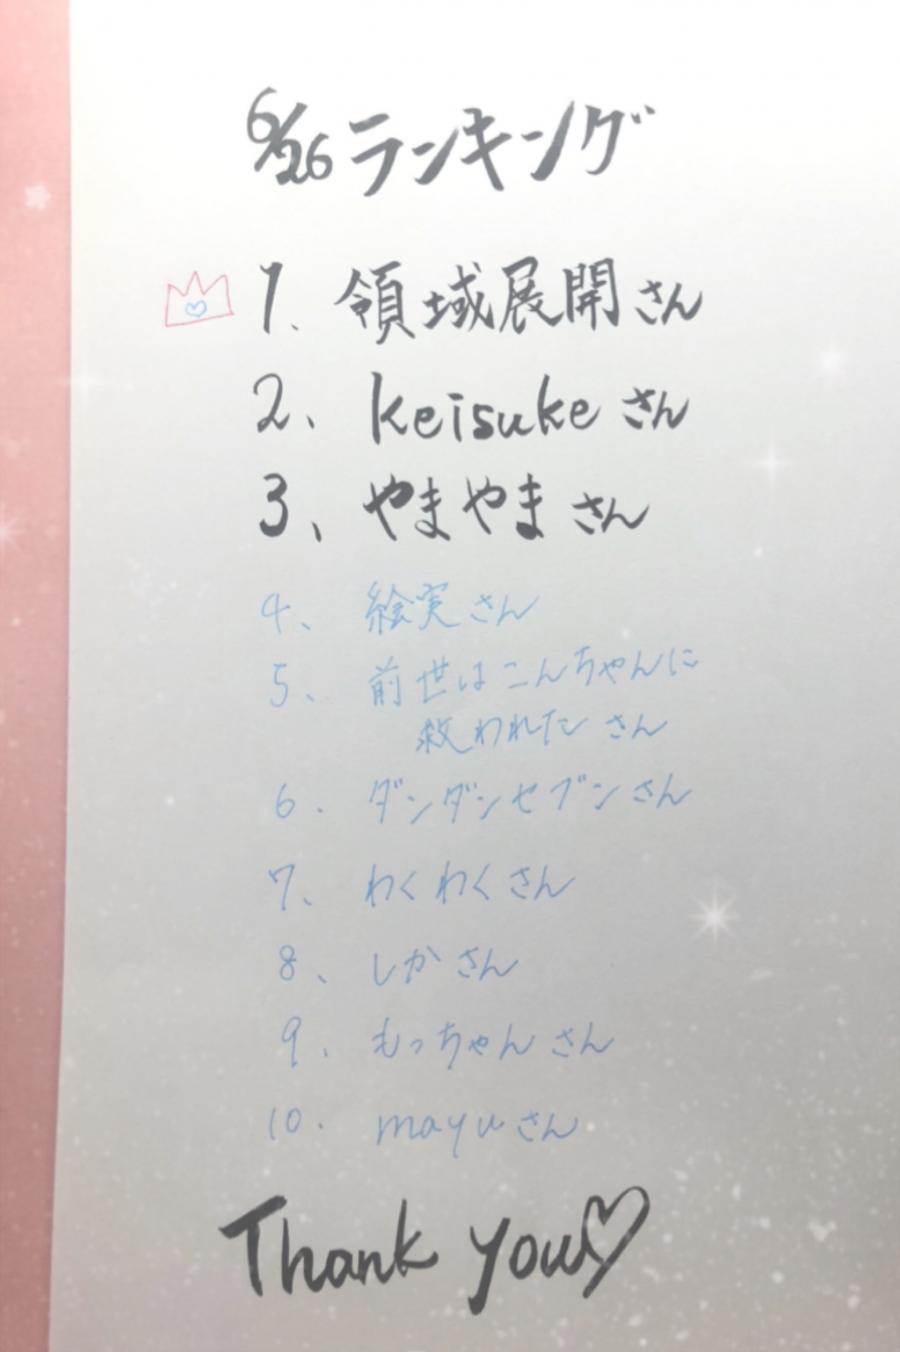 6/26 ランキング
1、領域展開さん
2、keisukeさん
3、やまやまさん
4、絵実さん
5、前世はこんちゃんに
救われたさん
6.ダンダンセブンさん
7、わくわくさん
8、しかさん
9、もっちゃんさん
10.mayuさん
Thank you♡